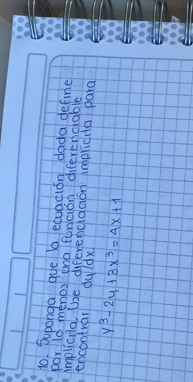 10. Suponga que la ecuación dada define
por lo menos una función diferenciable
implícita. Use diferenciación implícita para
encontrar dy/dx.
y³ - 2y + 3x³ = 4x + 1